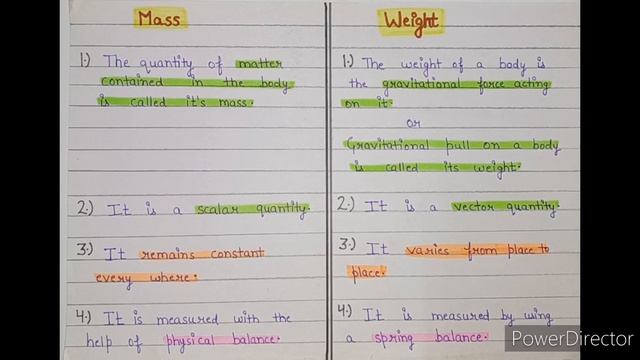 Mass
1.) The quantity of matter
contained in the body
is called it's mass.
2.) It is a scalar quantity.
3.) It remains constant
every where.
4.) It is measured with the
help of physical balance.
Weight
1.) The weight of a body is
the gravitational force acting
on it.
or
Gravitational pull on a body
is called its weight.
2.) It is a vector quantity.
3.) It varies from place to
place.
4.) It is measured by using
a spring balance.
PowerDirector